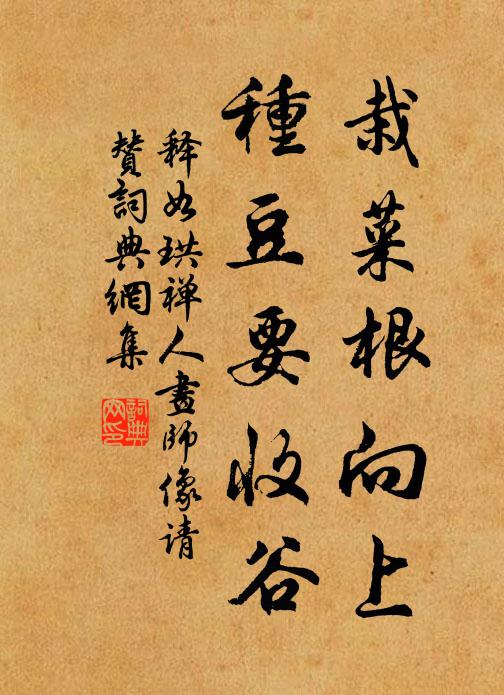 栽菜根向上
種豆要收谷
释如珙禅人畫師像请
赞詞典網集
詞典
网印